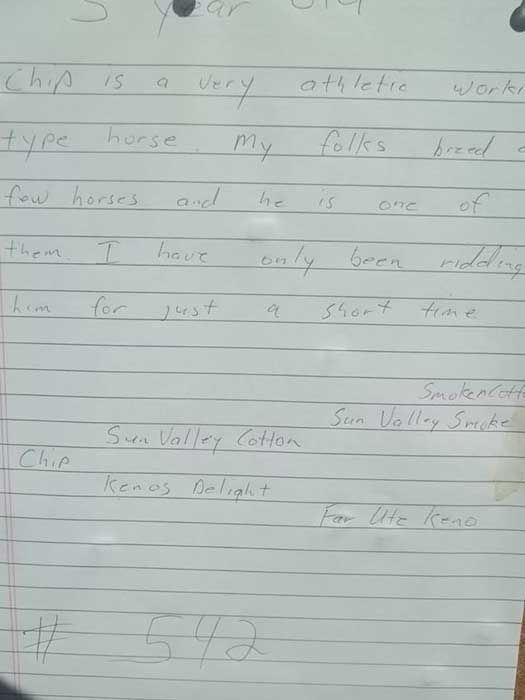 5 year old
Chip is a very athletic
type horse. My folks breed
few horses and he is one of
them. I have only been ridding
him for just a short time
Sun Valley Smoke
Sun Valley Cotton
Chip
Kenos Delight
Far Ute Keno
# 542